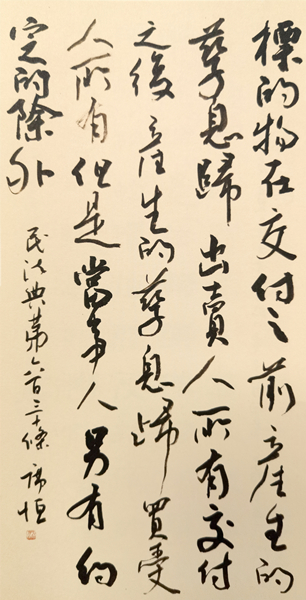 標的物在交付之前產生的
孳息歸出賣人所有交付
之後產生的孳息歸買受
人所有但是當事人另有約
定的除外
民法典第六百三十條 恒